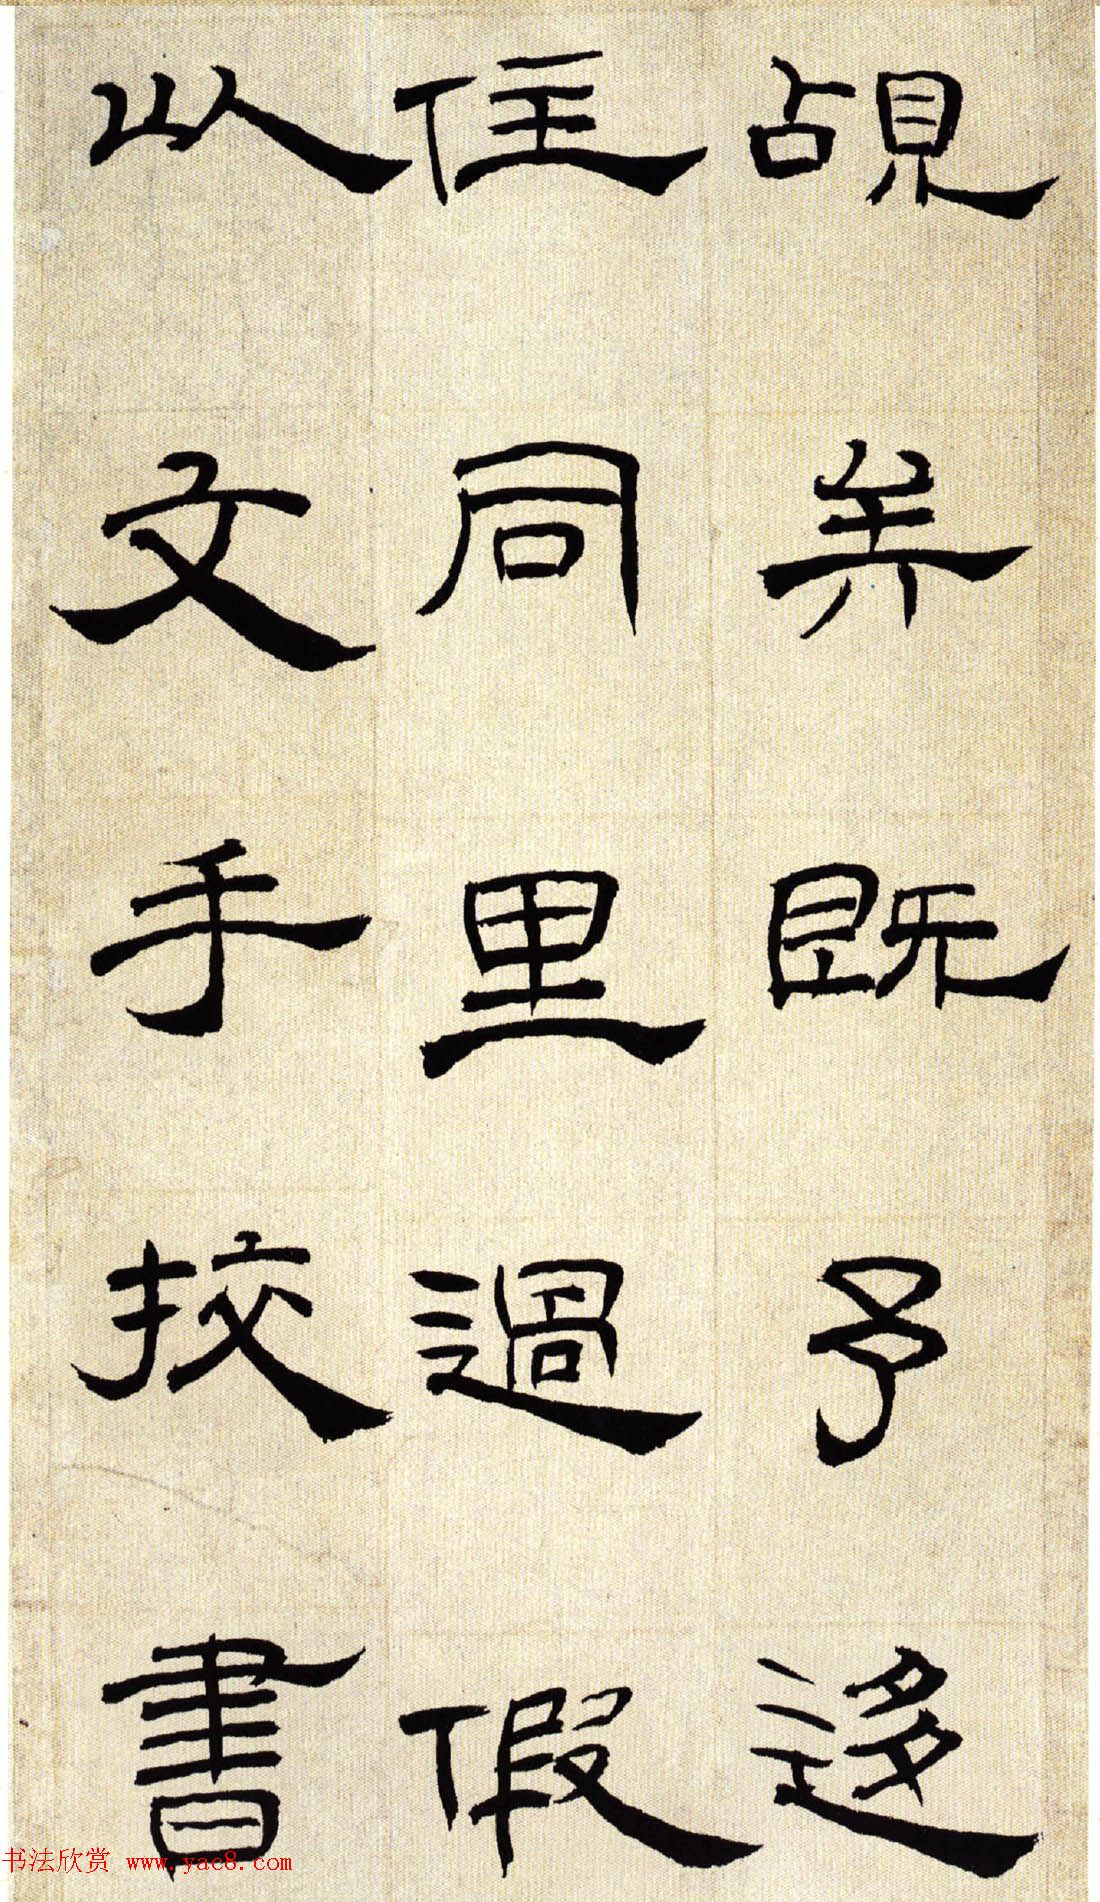 覘矣既予迻
住同里過假
以文手挍書
书法欣赏 www.yac8.com